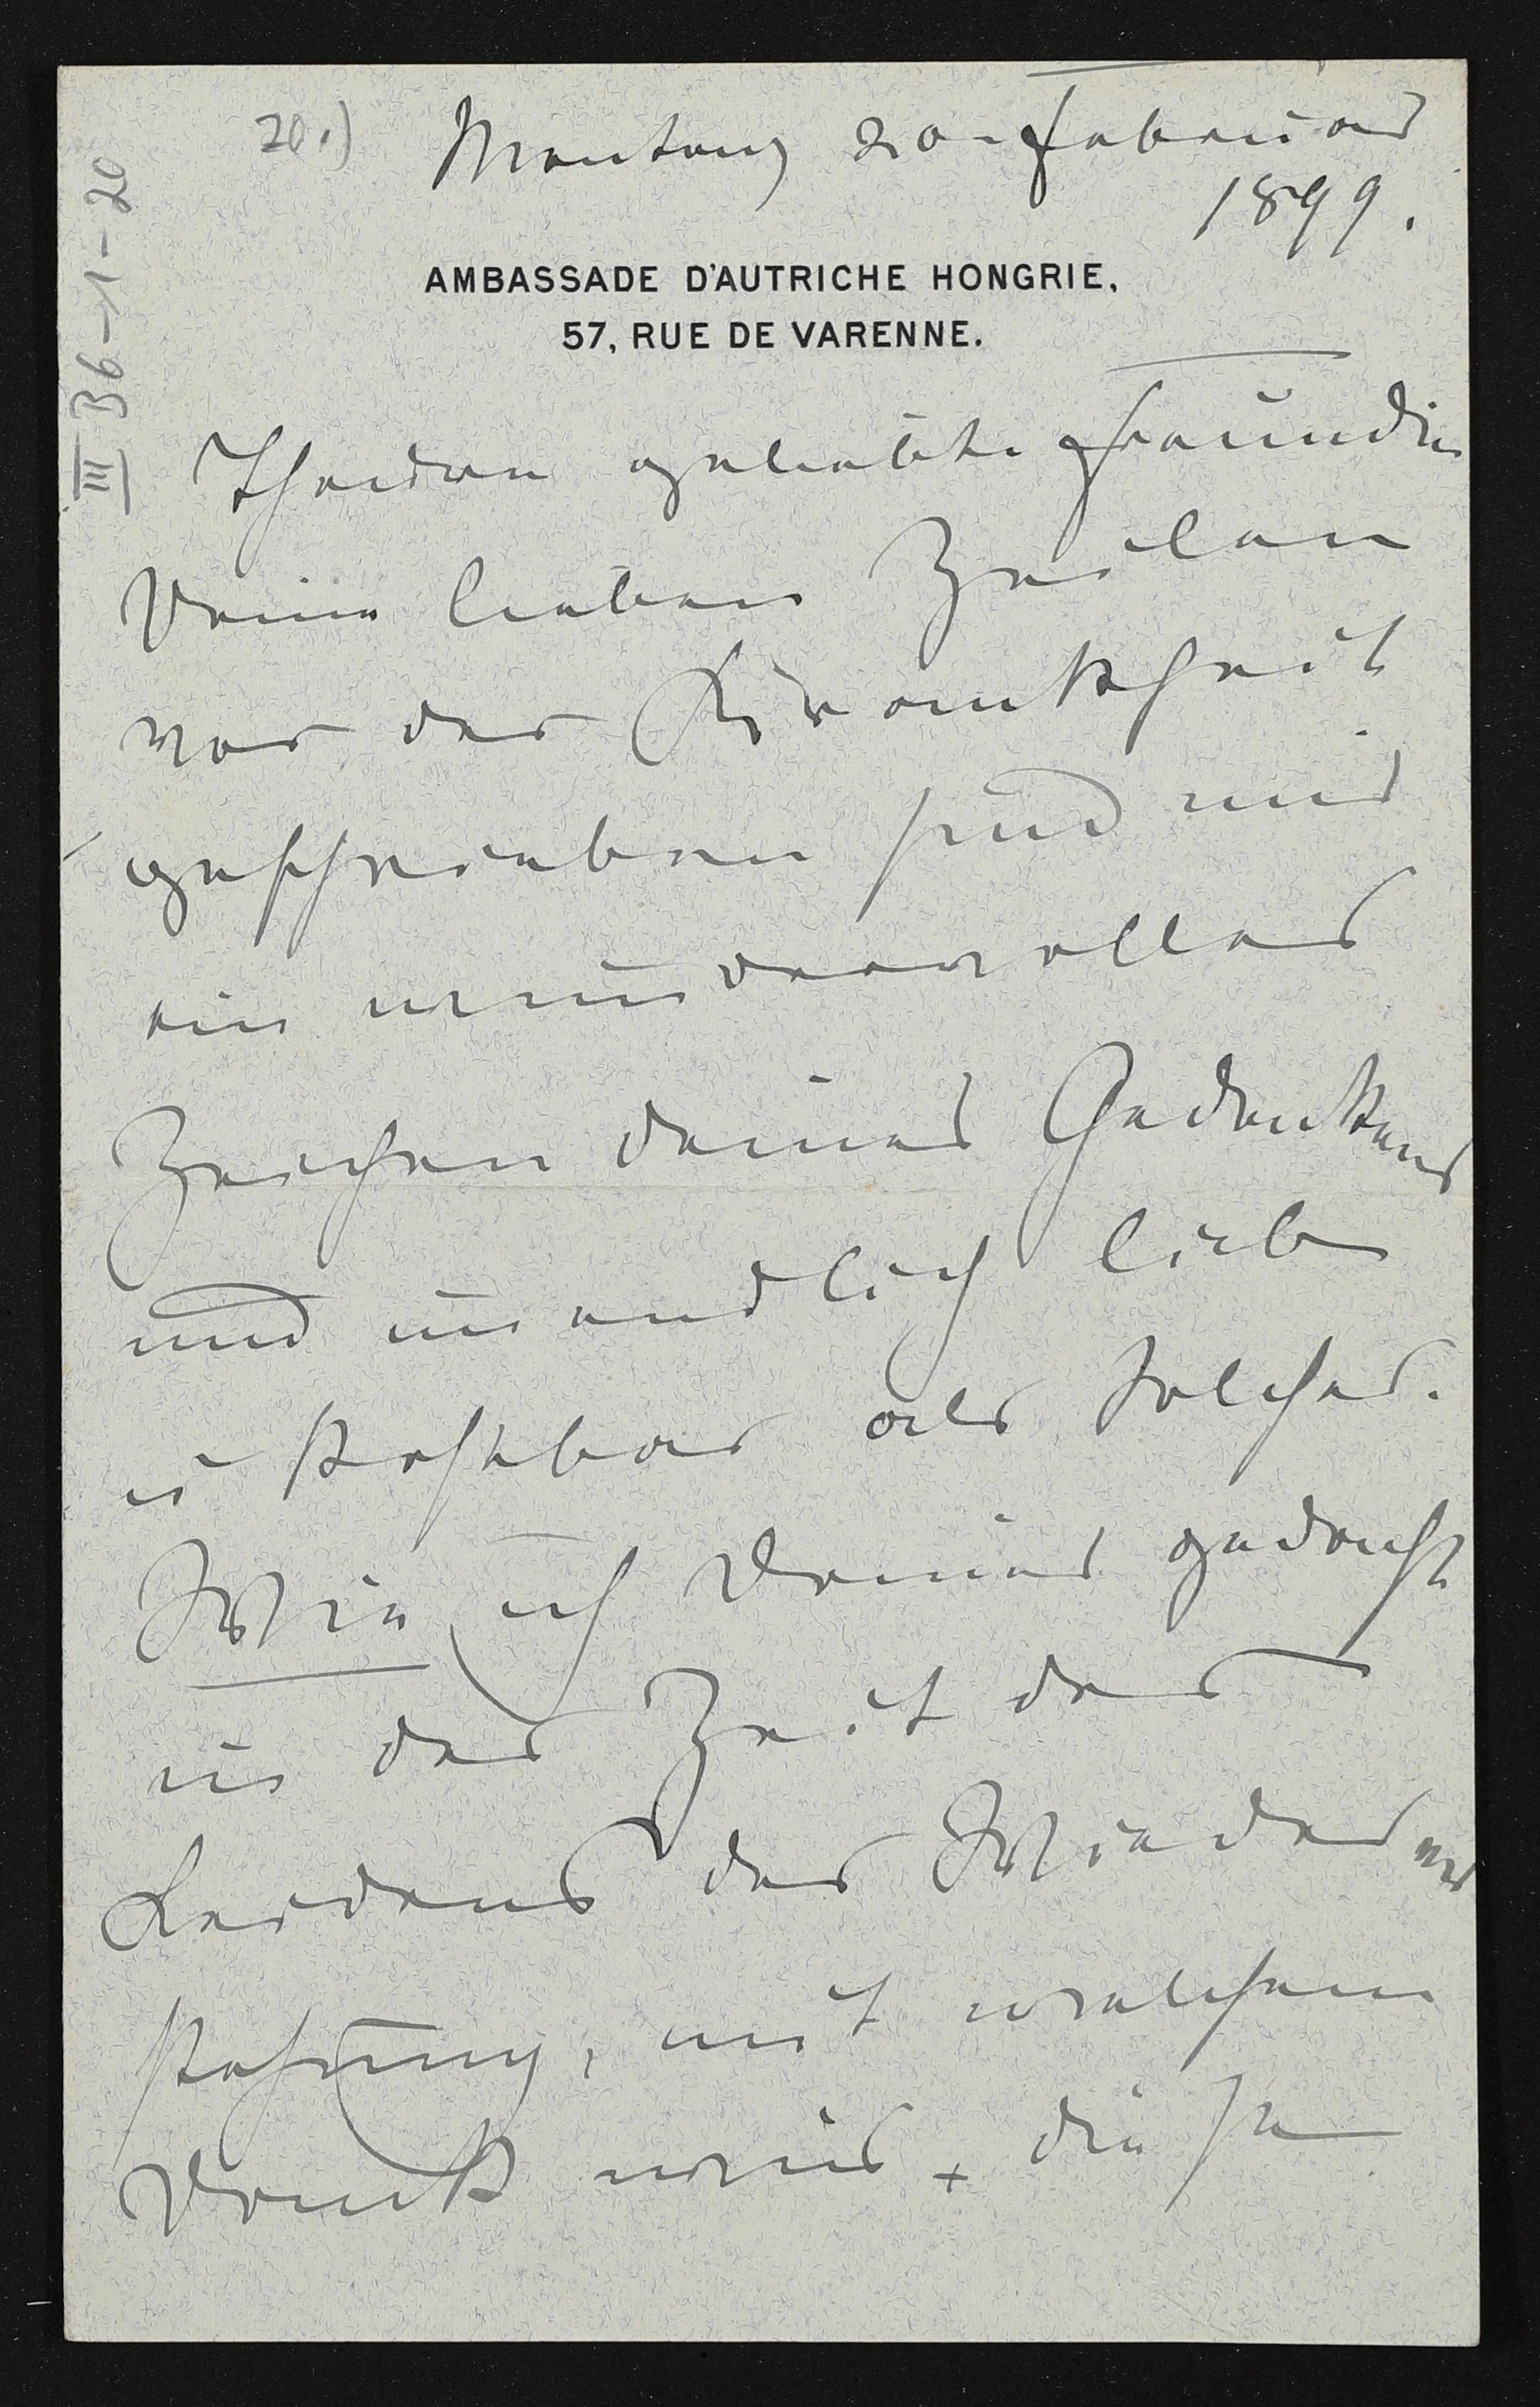 20.) Montag 20. Februar
1899.
III B6-1-20
AMBASSADE D'AUTRICHE HONGRIE,
57, RUE DE VARENNE.
Theuere geliebte Freundin
Deine lieben Zeilen
vor der Krankheit
geschrieben sind mir
ein wundervolles
Zeichen deines Gedenkens
und unendlich lieb
u kostbar als solches.
Wie ich Deiner gedacht
in der Zeit des
Leidens der Wiederer
kehrung, mit welchem
Dank wir, diese